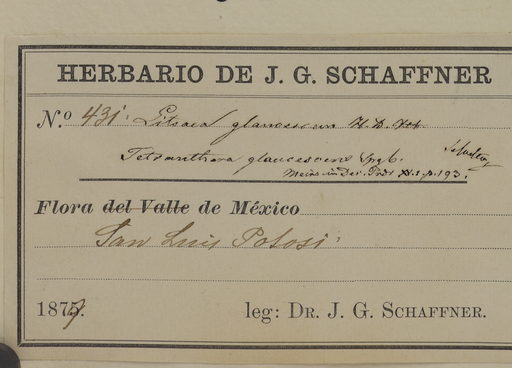 HERBARIO DE J. G. SCHAFFNER
N.º 431. Litsaea glaucescens H. B. Kth
Tetranthera glaucescens Sprgl.
Meisn in Dec. Prodr XV. 1. p. 193.
Flora del Valle de México
San Luis Potosi
1879.
leg: DR. J. G. SCHAFFNER.